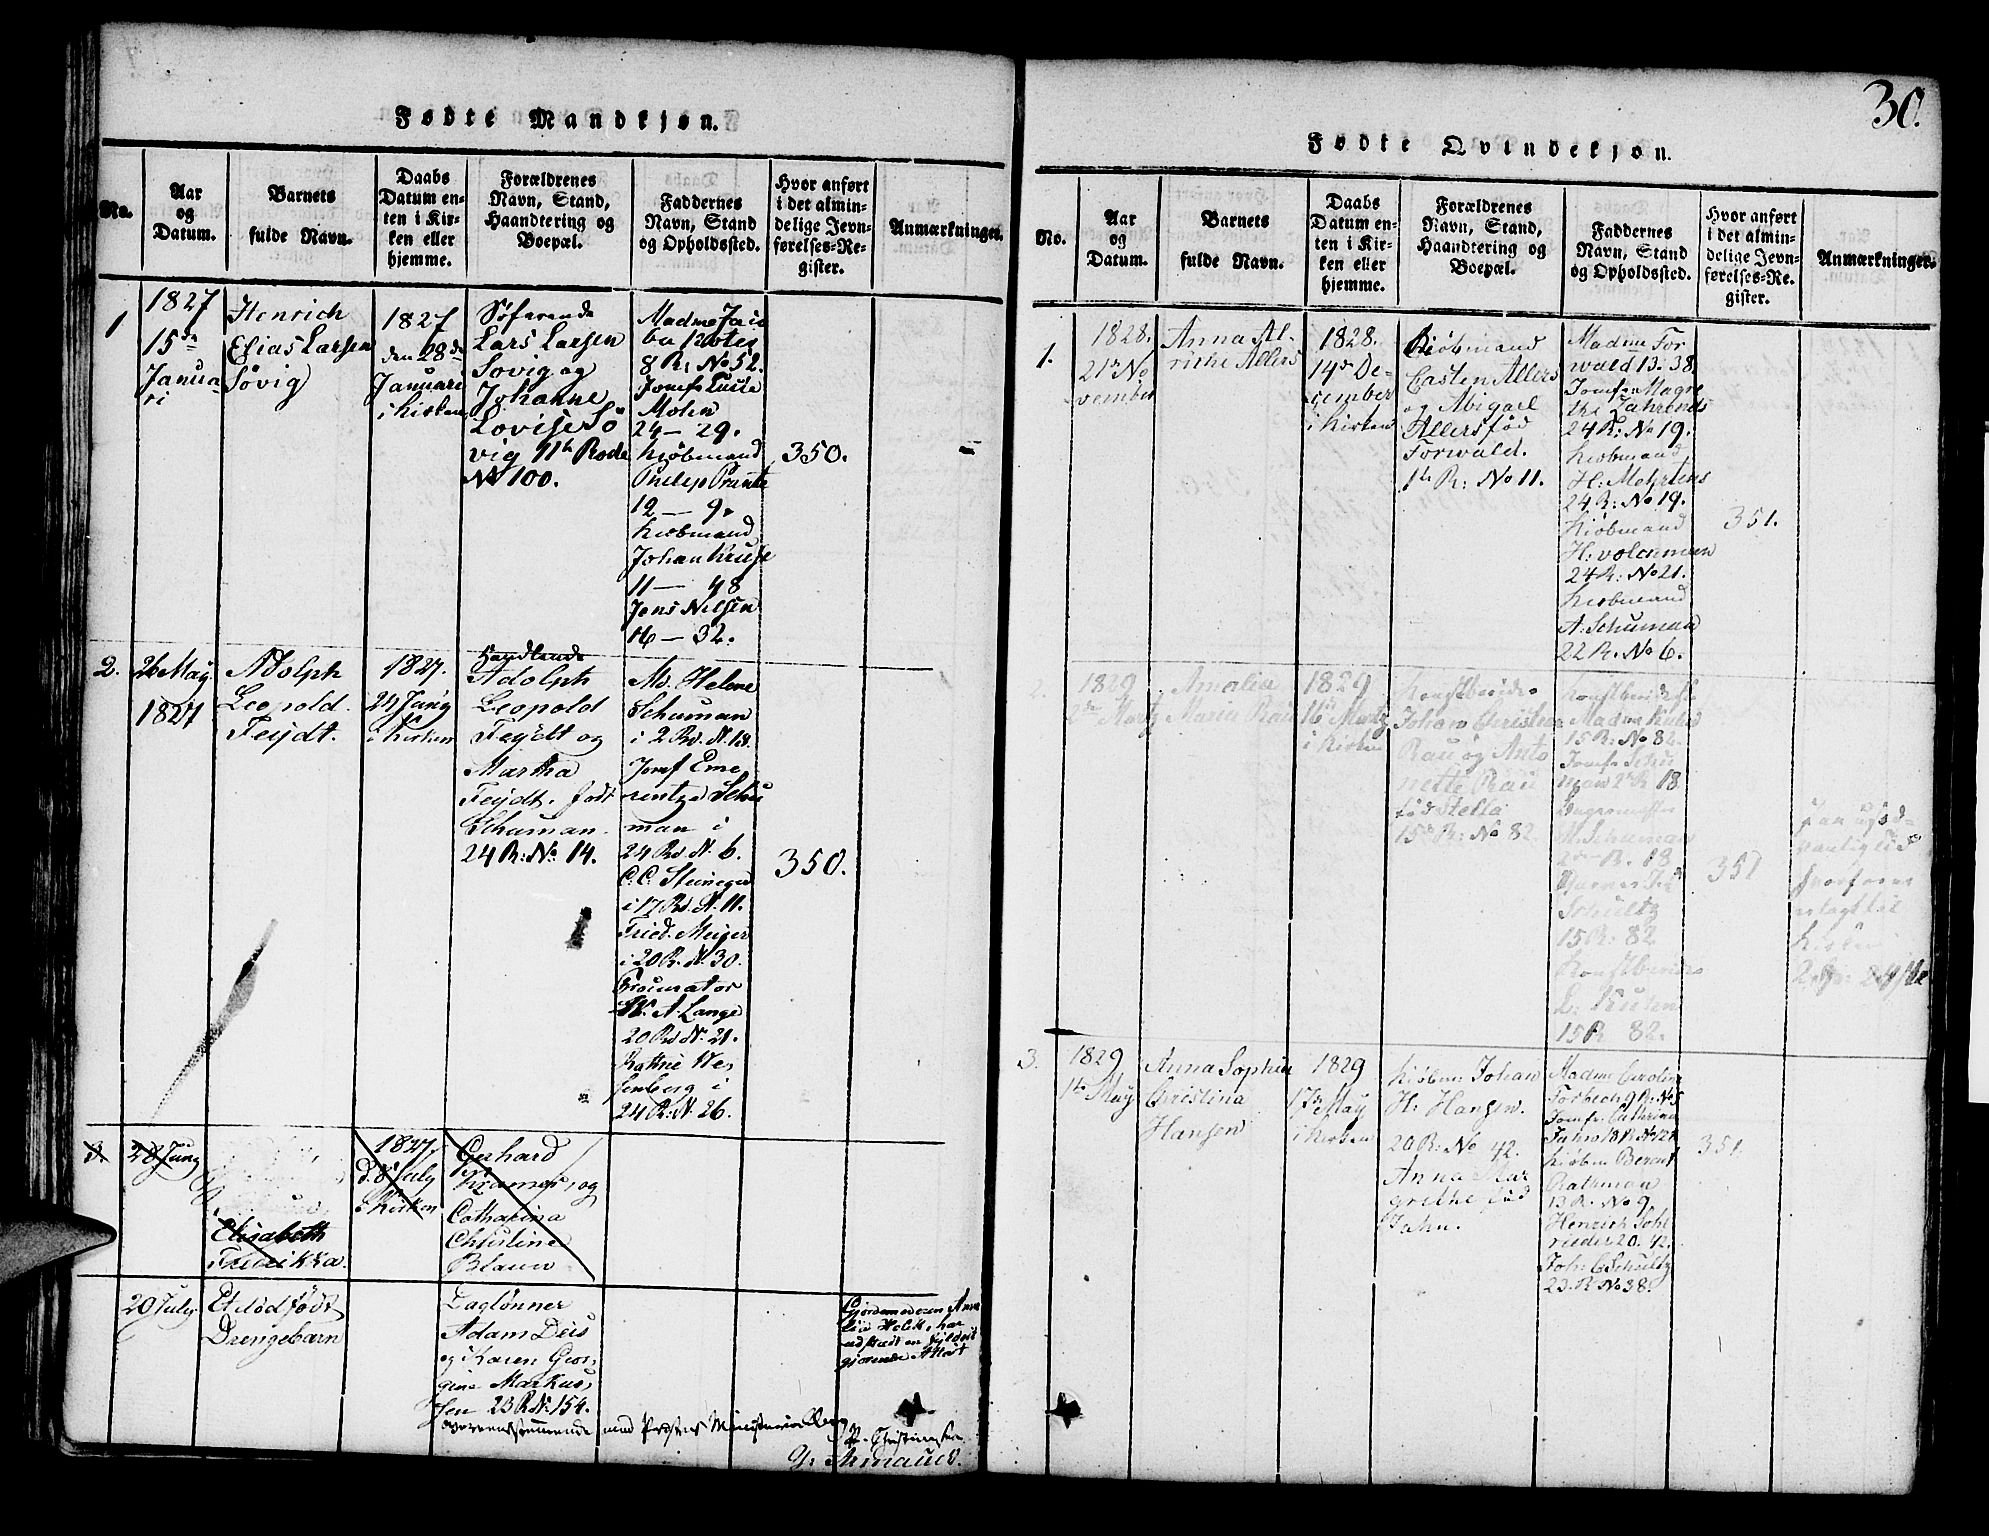 30.
Fødte Mandkjøn.
No.
Aar
og
Datum.
Barnets
fulde Navn.
Daabs
Datum en-
ten i Kir-
ken eller
hjemme.
Forældrenes
Navn, Stand,
Haandtering og
Boepæl.
Faddernes
Navn, Stand
og Opholdssted.
Hvor anført
i det almin-
delige Jevn-
førelses-Re-
gister.
Anmærkninger.
1
1827
15de
Janua-
ri
Henrich
Elias Larsen
Søvig
1827
den 28de
Januari
i Kirken
Søfarende
Lars Larsen
Sovig og
Johanne
Lovise Sö
vig 11te Rode
No 100.
Madme
8 R: No 52.
Jomfr
Mohn
24 — 29.
Kiöbmand
Philip
12 — 9.
Kiöbmand
Johan Kruse
11 — 48
Jens Nilsen
16 — 32.
350.
2.
26 May
1827
Adolph
Leopold
Feijdt.
1827.
24 Juny
i Kirken
Handlende
Adolph
Leopold
Feijdt og
Martha
Feijdt, født
Schuman
24 R: No 14.
M. Helene
Schuman
i 2 Rd. N. 18.
Jomf Eme
rentze Schu
man i
24 Rd. N. 6.
C. C. Steineger
i 17 Rd. N. 11.
Fried. Meijer
i 20 R. N. 30.
Procurator
A. Lange
20 Rd N. 21.
24 R. N. 26.
350.
28 Juny
Elisabeth
Fredrikka.
1827.
d. 8 July
i Kirken
Gerhard
Kramer, og
Catharina
Christine
Blaun
20 July
Et dødfødt
Drengebarn
Daglönner
Adam Deis
og Karen Geor-
gine Markus-
sen 23 R N. 154.
Gjordemoderen
har
udstædt en
Attest
overeensstemmende med Præstens Ministerial Bog
Fødte Qvindekjøn.
No.
Aar
og
Datum.
Barnets
fulde Navn.
Daabs
Datum en-
ten i Kir-
ken eller
hjemme.
Forældrenes
Navn, Stand,
Haandtering og
Boepæl.
Faddernes
Navn, Stand
og Opholdssted.
Hvor anført
i det almin-
delige Jevn-
førelses-Re-
gister.
Anmærkninger.
1.
1828.
21de No
vember
Anna Al-
rike Allers
1828.
14de De-
cember
i Kirken
Kiöbmand
Casten Allers
og Abigael
Allers föd
Forwald.
1te R: No 11.
Madme For
wald 13. 38.
Jomfr Magre
the Zahrends
24 R: No 19.
Kiobmand
H: Mehrtens
24 R: No 19.
Kiöbmand
H: Volckman
24 R: No 21.
Kiobmand
A: Schuman
22 R. No 6.
351.
2.
1829
Martz
Amalia
Maria Rau
1829
16de Martz
i Kirken
Johan Christian
Rau og Anto
nette Rau
föd Stella
15de R: No 82.
Madme Kuhn
15 R: No 82.
Jomfr Schu
man 2de R 18.
M. Schuman
R. 18.
Schultz
15 R: 82
L: Kuhn
15 R 82.
351
3.
1829
1te May
Anna Sophia
Christina
Hansen
1829
17de May
i Kirken
Kiöbm: Johan
H: Hansen.
20 R: No 42.
Anna Mar
grethe föd
Jahn.
Madme Caroline
Forbech 9 R: No 5
Jomfr Cathrina
Jahn 18 R No 121
Kiöbm Berent
Rathman
13 R. No 9.
Henrich Johl
20. 42.
Joh: C Schultz
23. R No 38.
351.